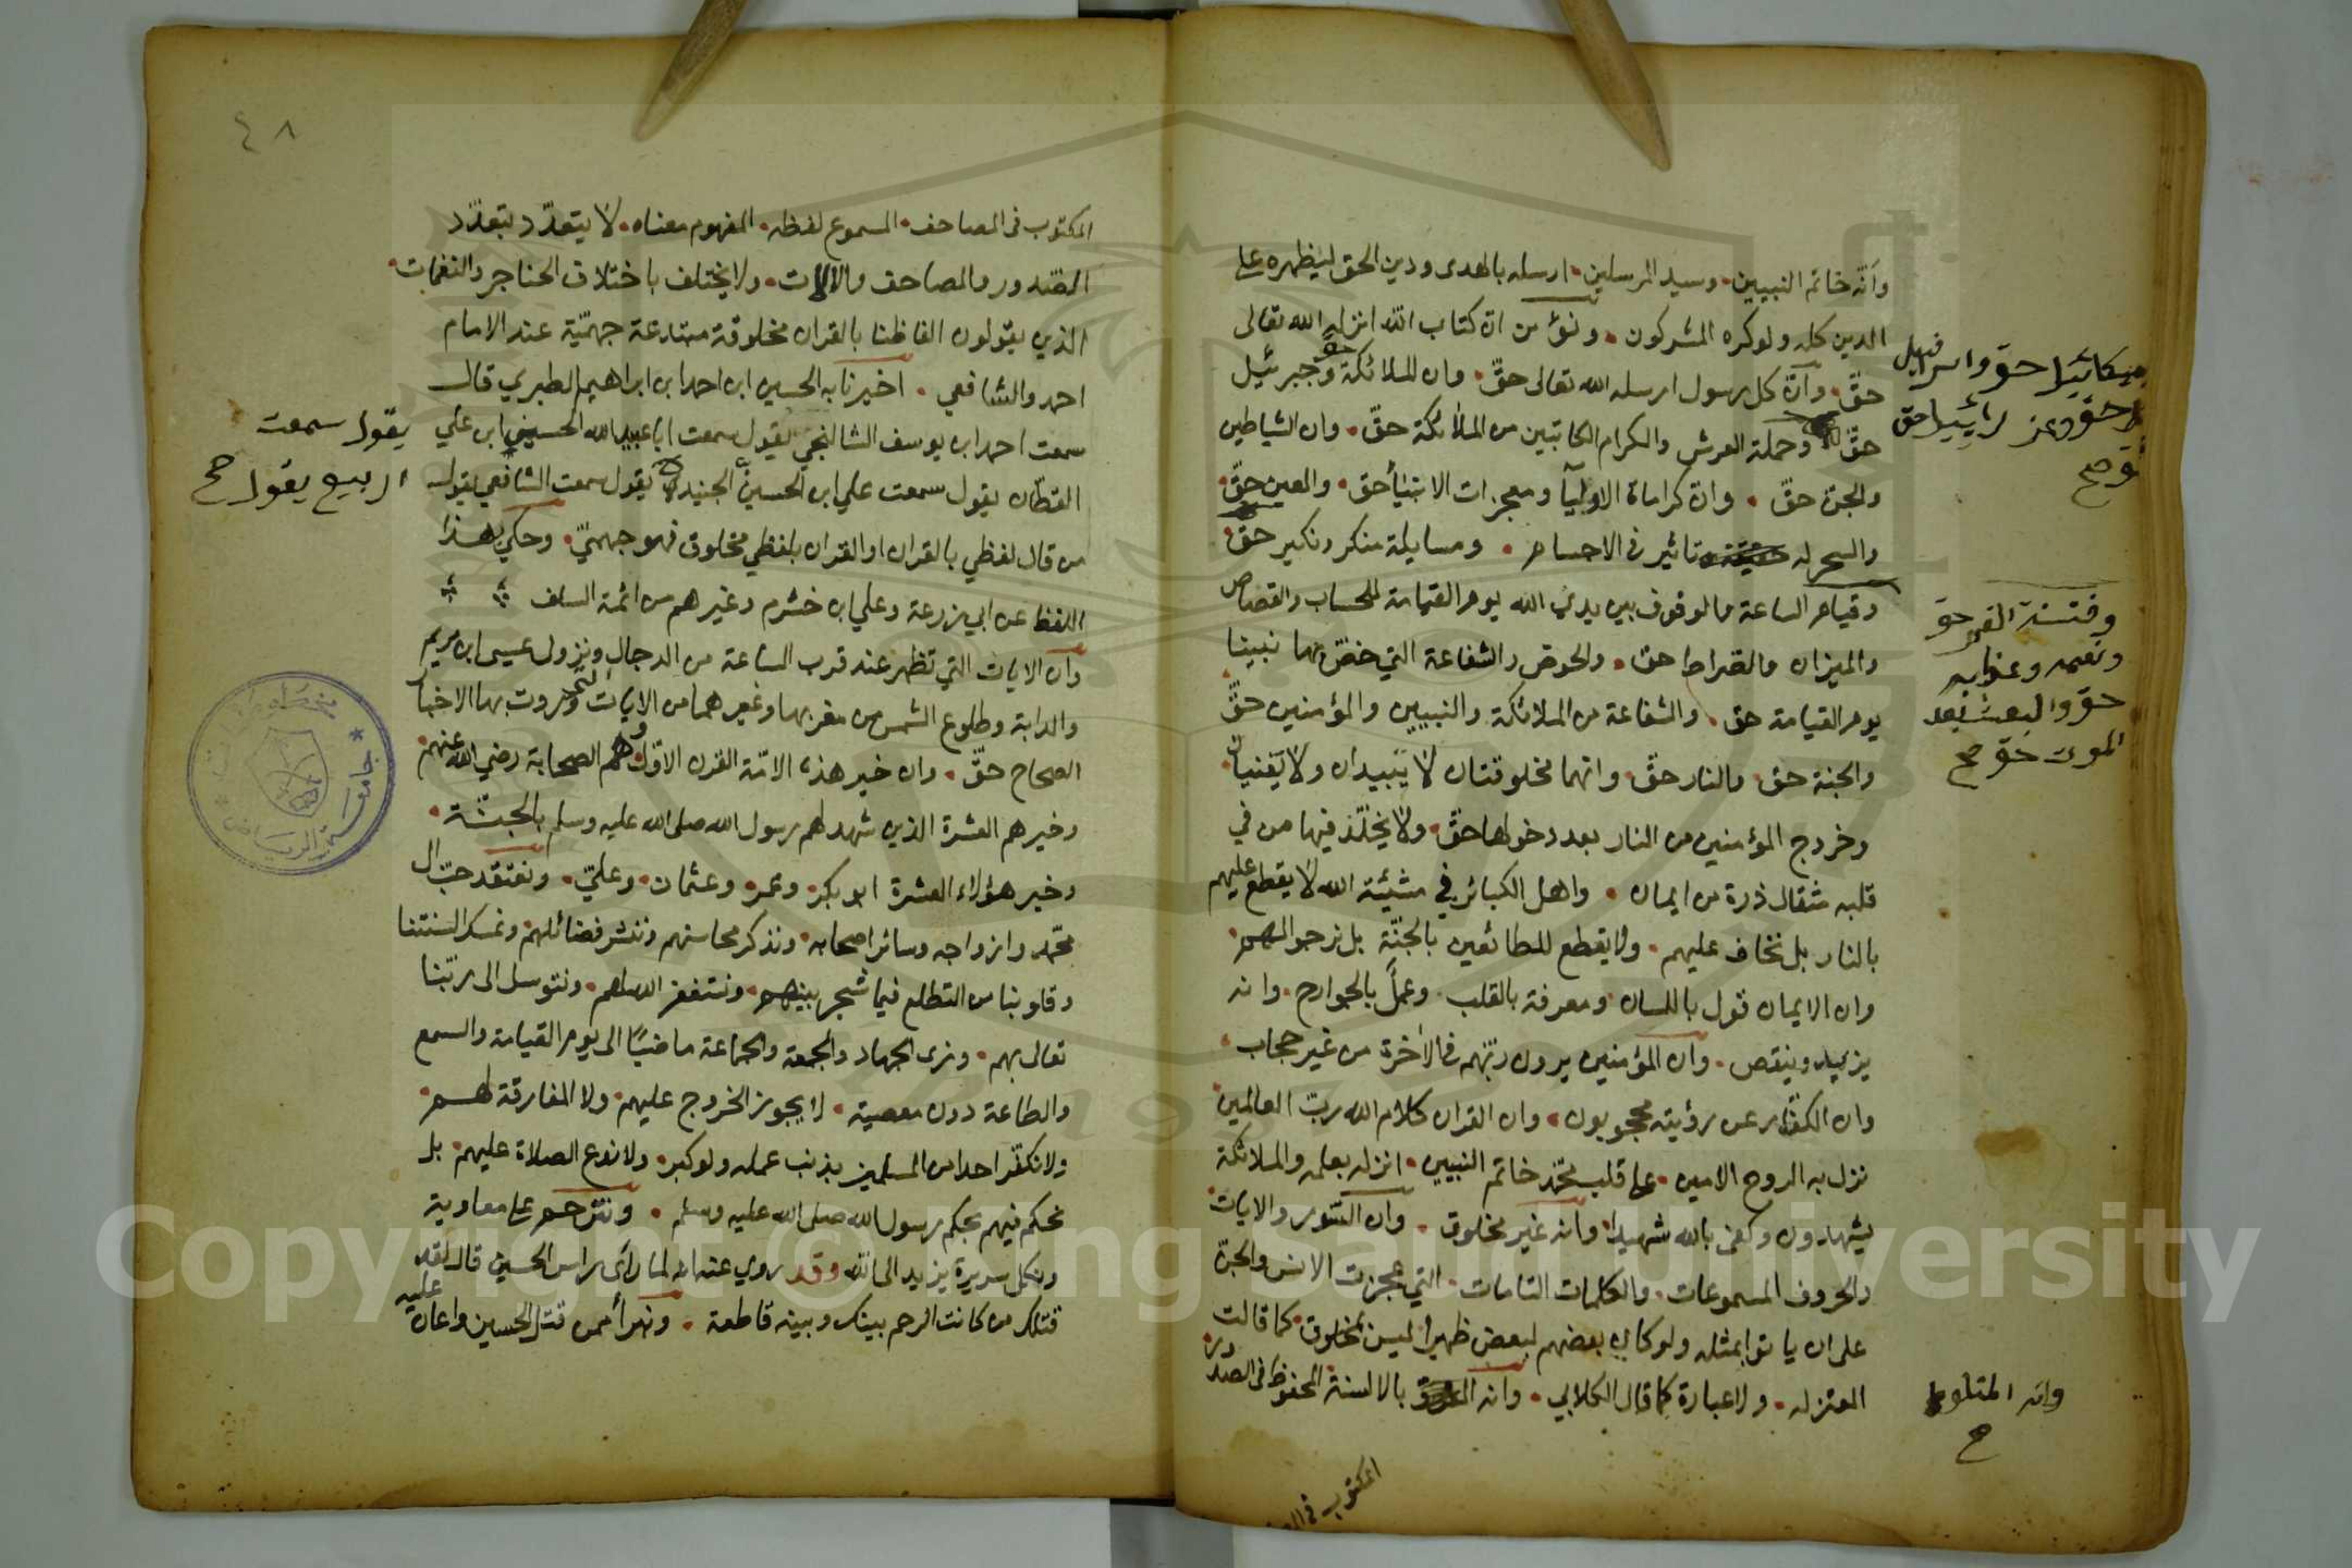 وأنّه خاتم النبيين . وسيد المرسلين . ارسله بالهدى ودين الحق ليظهره على
الدين كله ولو كره المشركون . ونؤمن ان كتاب الله انزله الله تعالى
حقّ . وأنّ كل رسول ارسله الله تعالى حقّ . وان الملائكة حق وجبرئيل
حقّ وحملة العرش والكرام الكاتبين من الملائكة حقّ . وان الشياطين
والجن حقّ . وان كراماة الاوليآ ومعجزات الانبيأ حق . والعين حقّ .
والسحر له تاثير في الاجسام . ومسايلة منكر ونكير حق .
وقيام الساعة والوقوف بين يدي الله يوم القيامة للحساب والقصاص
والميزان والصراط حق . والحوض والشفاعة التي خصّ بها نبينا
يوم القيامة حق . والشفاعة من الملائكة والنبيين والمؤمنين حقّ
والجنة حق والنار حقّ . وانهما مخلوقتان لا يبيدان ولا يفنيان .
وخروج المؤمنين من النار بعد دخولها حقّ . ولا يخلّد فيها من في
قلبه مثقال ذرة من ايمان . واهل الكبائر في مشيئة الله لا يقطع عليهم
بالنار بل نخاف عليهم . ولا يقطع للطائعين بالجنّة بل نرجو لهم .
وان الايمان قول باللسان ومعرفة بالقلب . وعمل بالجوارح . وانه
يزيد وينقص . وان المؤمنين يرون ربّهم في الآخرة من غير حجاب .
وان الكفّار عن رؤيته محجوبون . وان القران كلام الله ربّ العالمين
نزل به الروح الامين . على قلب محمّد خاتم النبيين . انزله بعلمه والملائكة
يشهدون وكفى بالله شهيدا . وانه غير مخلوق . وان السّور والايات .
والحروف المسموعات . والكلمات التامات . التي عجزت الانس والجنّ
على ان ياتوا بمثله ولو كان بعضهم لبعض ظهيرا . ليس بمخلوق . كما قالت
المعتزله . ولا عبارة كما قال الكلابي . وانه بالالسنة . المحفوظ في الصدور .
ميكائيل حق واسرافيل
حق وعزرائييل حق
صح
وفتنة القبر حق
ونعيمه وعذابه
حق والبعث بعد
الموت حق صح
وانه المتلو
صح
المكتوب في
٤٨
المكتوب في المصاحف . المسموع لفظه . المفهوم معناه . لا يتعدّد بتعدّد
الصّدور والمصاحف والالات . ولا يختلف باختلاف الحناجر والنغمات .
الذين يقولون الفاظنا بالقران مخلوقة مبتدعة جهميّة عند الامام
احمد والشافعي . اخبرنا به الحسين ابن احمد ابن ابراهيم الطبري قال
سمعت احمد ابن يوسف الشالنجي يقول سمعت ابا عبد الله الحسين ابن علي
القطّان يقول سمعت علي ابن الحسين الجنيد يقول سمعت الشافعي يقول
من قال لفظي بالقران او القران بلفظي مخلوق فهو جهميّ . وحكي بهذا
اللفظ عن ابي زرعة وعلي ابن خشرم وغيرهم من ائمة السلف
وان الايات التي تظهر عند قرب الساعة من الدجال ونزول عيسى ابن مريم
والدابة وطلوع الشمس من مغربها وغيرهما من الايات التي وردت بها الاخبار
الصحاح حقّ . وان خير هذه الامّة القرن الاوّل وهم الصحابة رضي الله عنهم .
وخيرهم العشرة الذين شهد لهم رسول الله صلى الله عليه وسلم بالجنّة .
وخير هؤلاء العشرة ابو بكر . وعمر . وعثمان . وعليّ . ونعتقد حبّ ال
محمّد وازواجه وسائر اصحابه . ونذكر محاسنهم وننشر فضائلهم . ونمسك السنتنا
وقلوبنا من التطلع فيما شجر بينهم . ونستغفر الله لهم . ونتوسل الى ربّنا
تعالى بهم . ونرى الجهاد والجمعة والجماعة ماضيًا الى يوم القيامة والسمع
والطاعة دون معصية . لا يجوز الخروج عليهم . ولا المفارقة لهم .
ولا نكفّر احدا من المسلمين بذنب عمله ولو كبر . ولا ندع الصلاة عليهم . بل
نحكم فيهم بحكم رسول الله صلى الله عليه وسلم . ونترحم على معاوية
ونكل سريرة يزيد الى الله وقد روي عنه انه لما رأى راس الحسين قال لقد
قتلك من كانت الرحم بينك وبينه قاطعة . ونبرأ ممن قتل الحسين واعان عليه
يقول سمعت
الربيع يقول صح
جامعة الرياض
Copyright © King Saud University